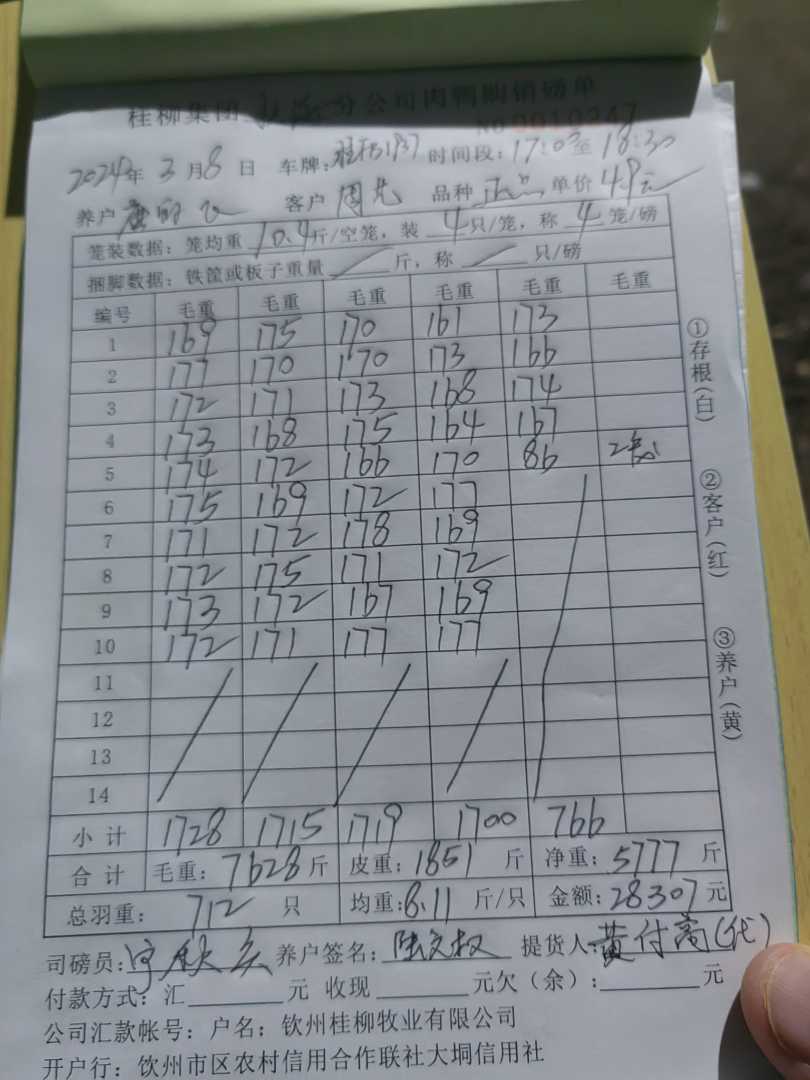 桂柳集团 分公司肉鸭购销磅单
No 0010247
2024年3月8日 车牌: 时间段:17:03至18:30
养户 客户 周光 品种 正品 单价 4.9元
笼装数据:笼均重 10.4斤/空笼,装 4只/笼,称 4笼/磅
捆脚数据:铁筐或板子重量 / 斤,称 / 只/磅
编号 毛重 毛重 毛重 毛重 毛重 毛重
1 169 175 170 161 173
2 177 170 170 173 166
3 172 171 173 168 174
4 173 168 175 164 167
5 174 172 166 170 86 2笼
6 175 169 172 177
7 171 172 178 169
8 172 175 171 172
9 173 172 167 169
10 172 171 177 177
11
12
13
14
小计 1728 1715 1719 1700 766
合计 毛重:7628斤 皮重:1851斤 净重:5777斤
总羽重: 712 只 均重:8.11斤/只 金额:28307元
司磅员: 养户签名:陆文权 提货人:黄付高(代)
付款方式:汇 元 收现 元欠(余): 元
公司汇款帐号:户名:钦州桂柳牧业有限公司
开户行:钦州市区农村信用合作联社大垌信用社
①存根(白)
②客户(红)
③养户(黄)